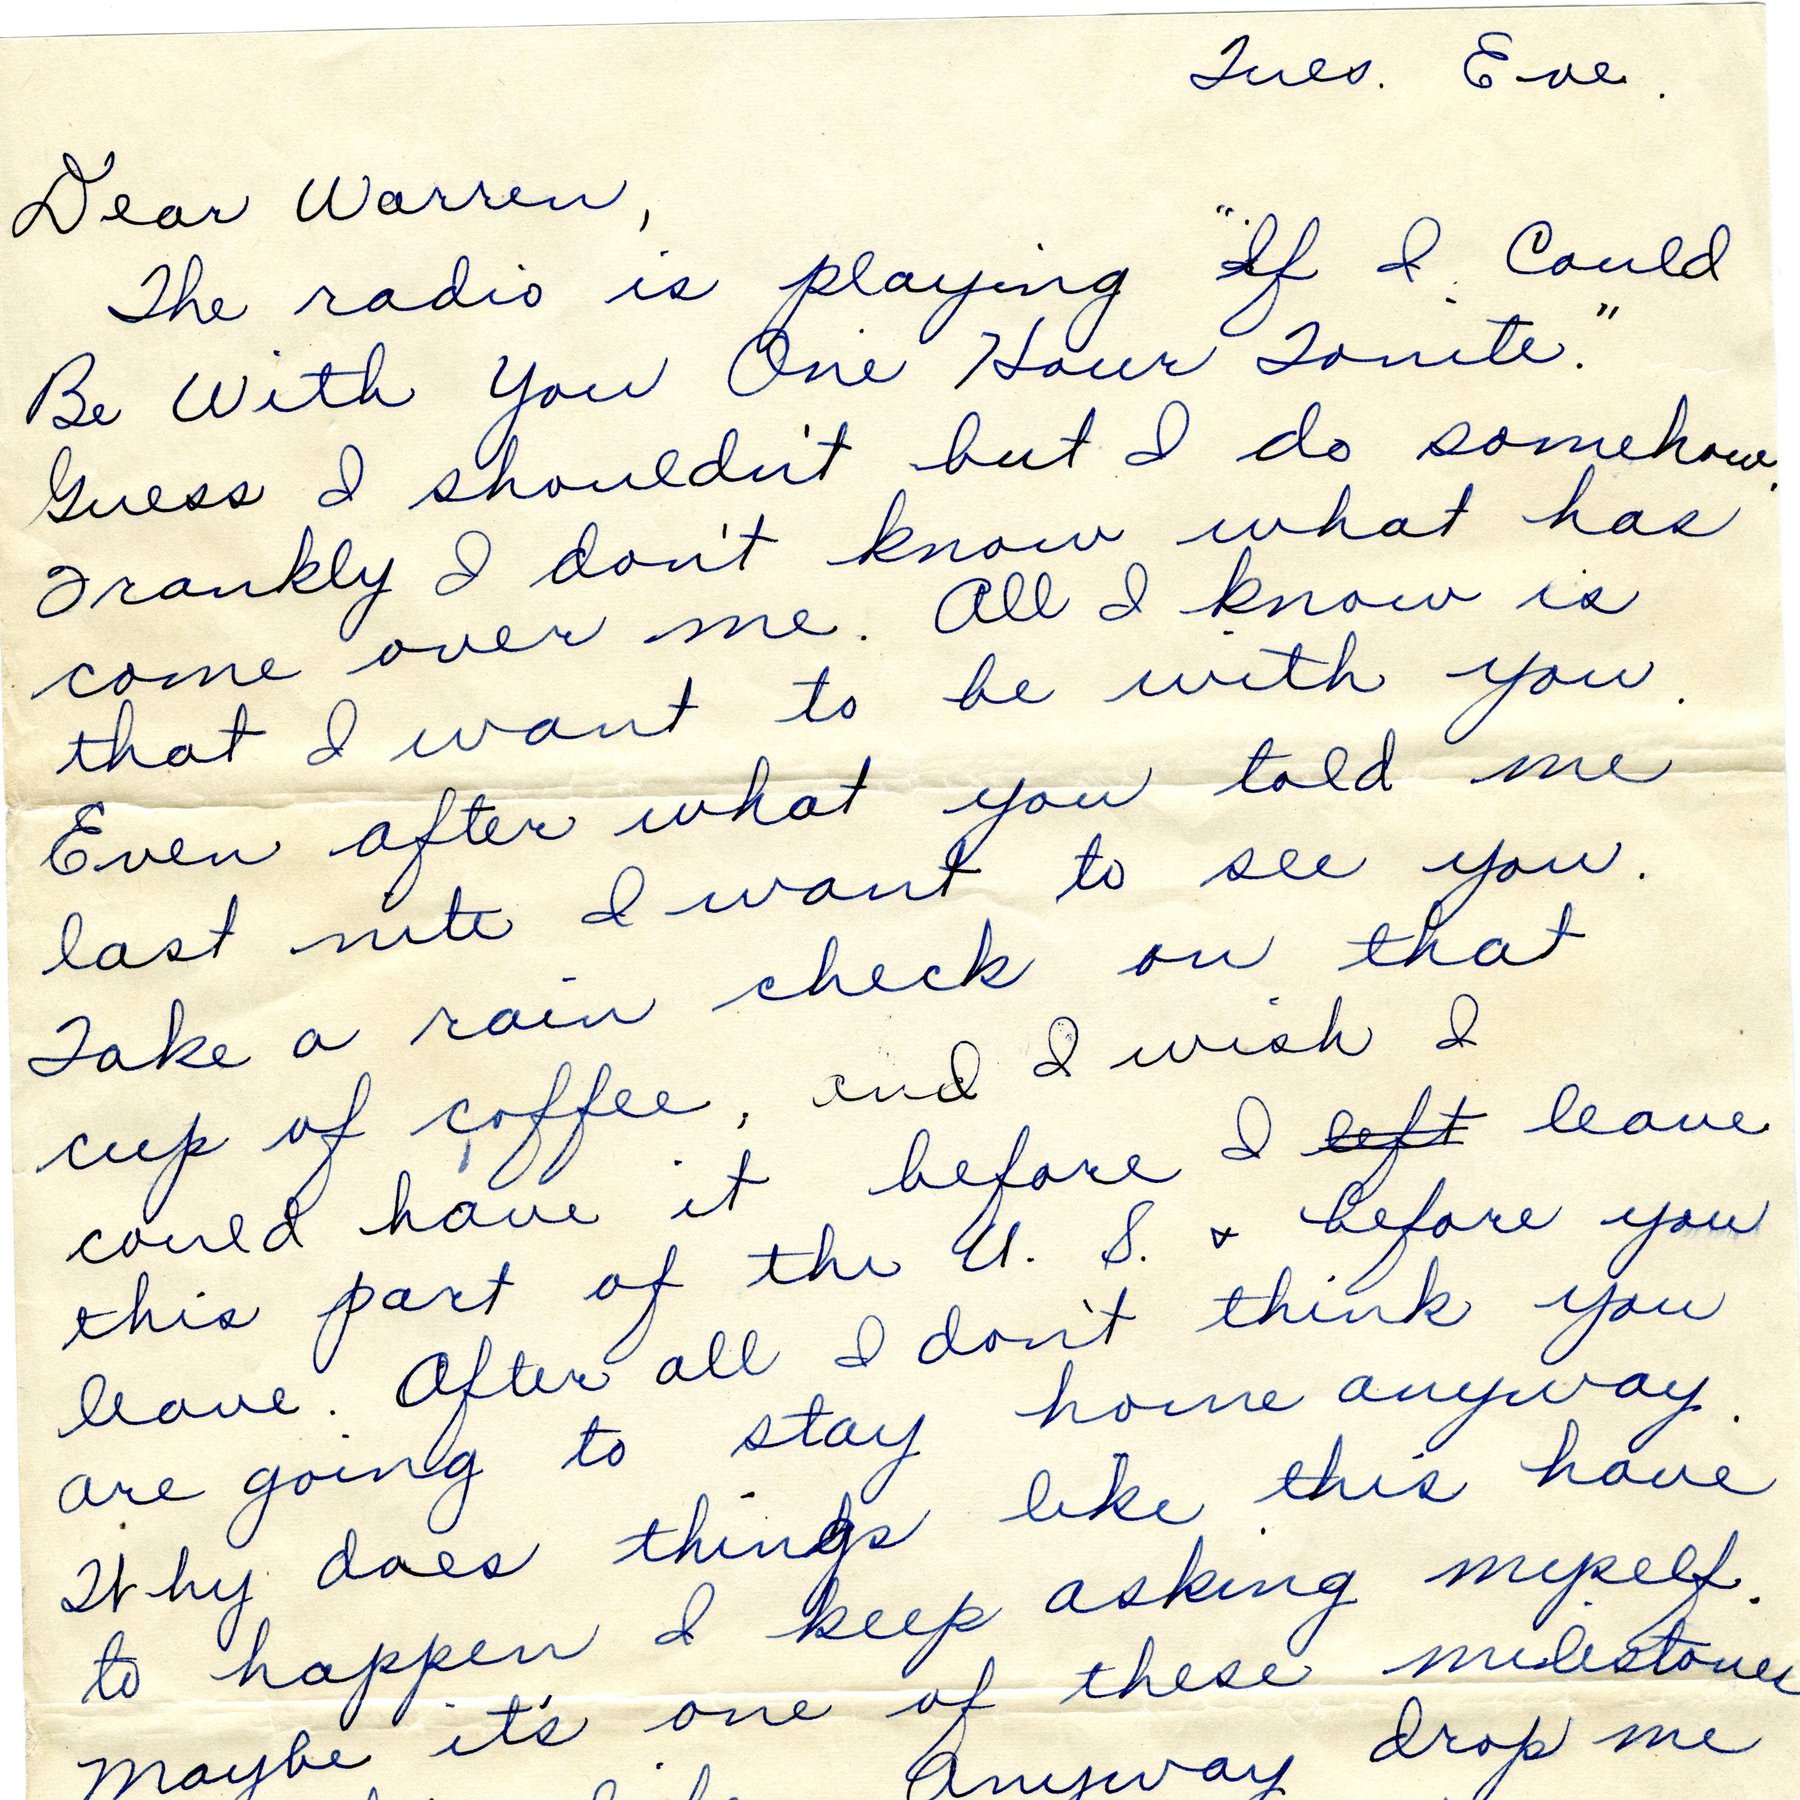 Tues. Eve.
Dear Warren,
The radio is playing "If I Could
Be With You One Hour Tonite."
Guess I shouldn't but I do somehow.
Frankly I don't know what has
come over me. All I know is
that I want to be with you.
Even after what you told me
last nite I want to see you.
Take a rain check on that
cup of coffee, and I wish I
could have it before I left leave
this part of the U. S. & before you
leave. After all I don't think you
are going to stay home anyway.
Why does things like this have
to happen I keep asking myself.
Maybe it's one of these milestones
Anyway drop me